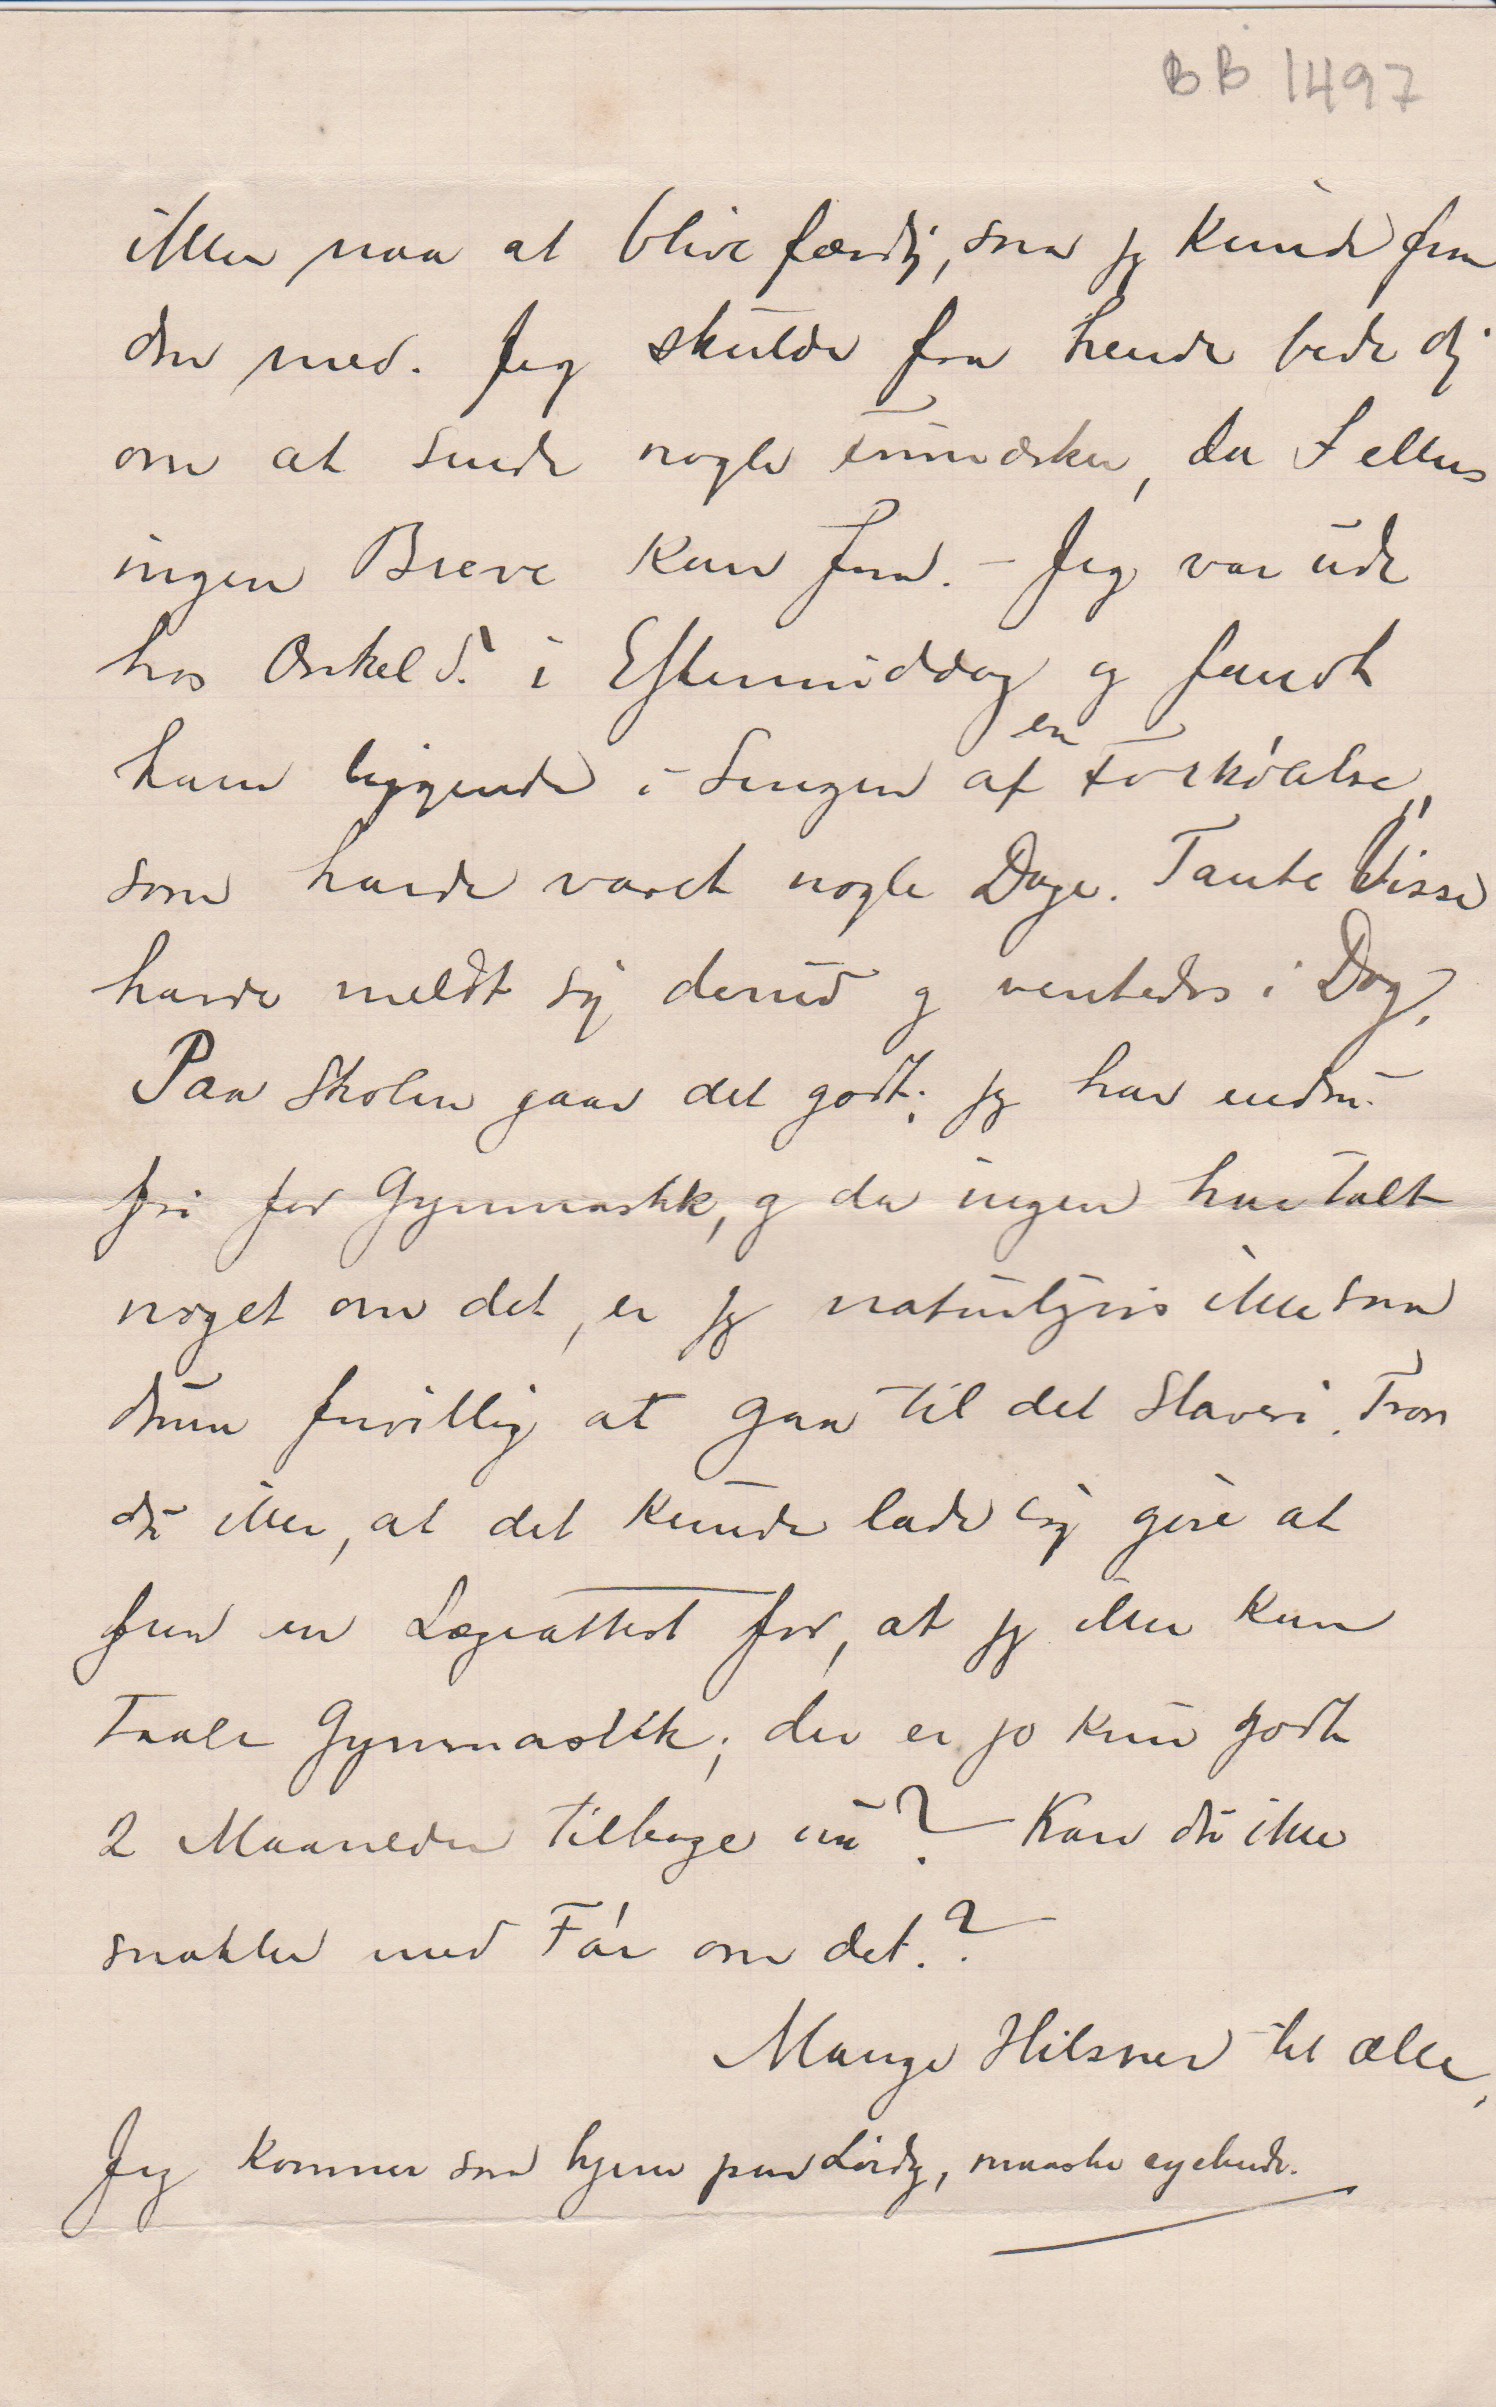 BB 1497
ikke naa at blive færdig, saa jeg kunde faa
den med. Jeg skulde fra hende bede dig
om at sende nogle da I ellers
ingen Breve kan faa. - Jeg var ude
hos Onkel S. i Eftermiddag og fandt
ham liggende i Sengen af en Forkølelse,
som havde varet nogle Dage. Tante Visse
havde meldt sig derud og ventedes i Dag.
Paa Skolen gaar det godt; jeg har endnu
fri for Gymnastik, og da ingen har talt
noget om det, er jeg naturligvis ikke saa
dum frivillig at gaa til det Slaveri. Tror
du ikke, at det kunde lade sig gøre at
faa en Lægeattest for, at jeg ikke kan
taale Gymnastik; der er jo kun godt
2 Maaneder tilbage nu? Kan du ikke
snakke med Får om det.?
Mange Hilsner til alle,
Jeg kommer saa hjem paa Lørdg, maaske cyclende.